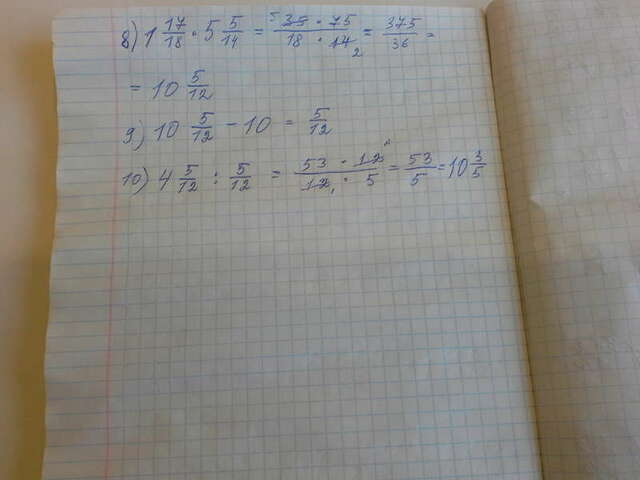 8) 1 17/18 · 5 5/14 = 35 · 75 / 18 · 14 = 375/36 =
= 10 5/12
9) 10 5/12 - 10 = 5/12
10) 4 5/12 : 5/12 = 53 · 12 / 12 · 5 = 53/5 = 10 3/5